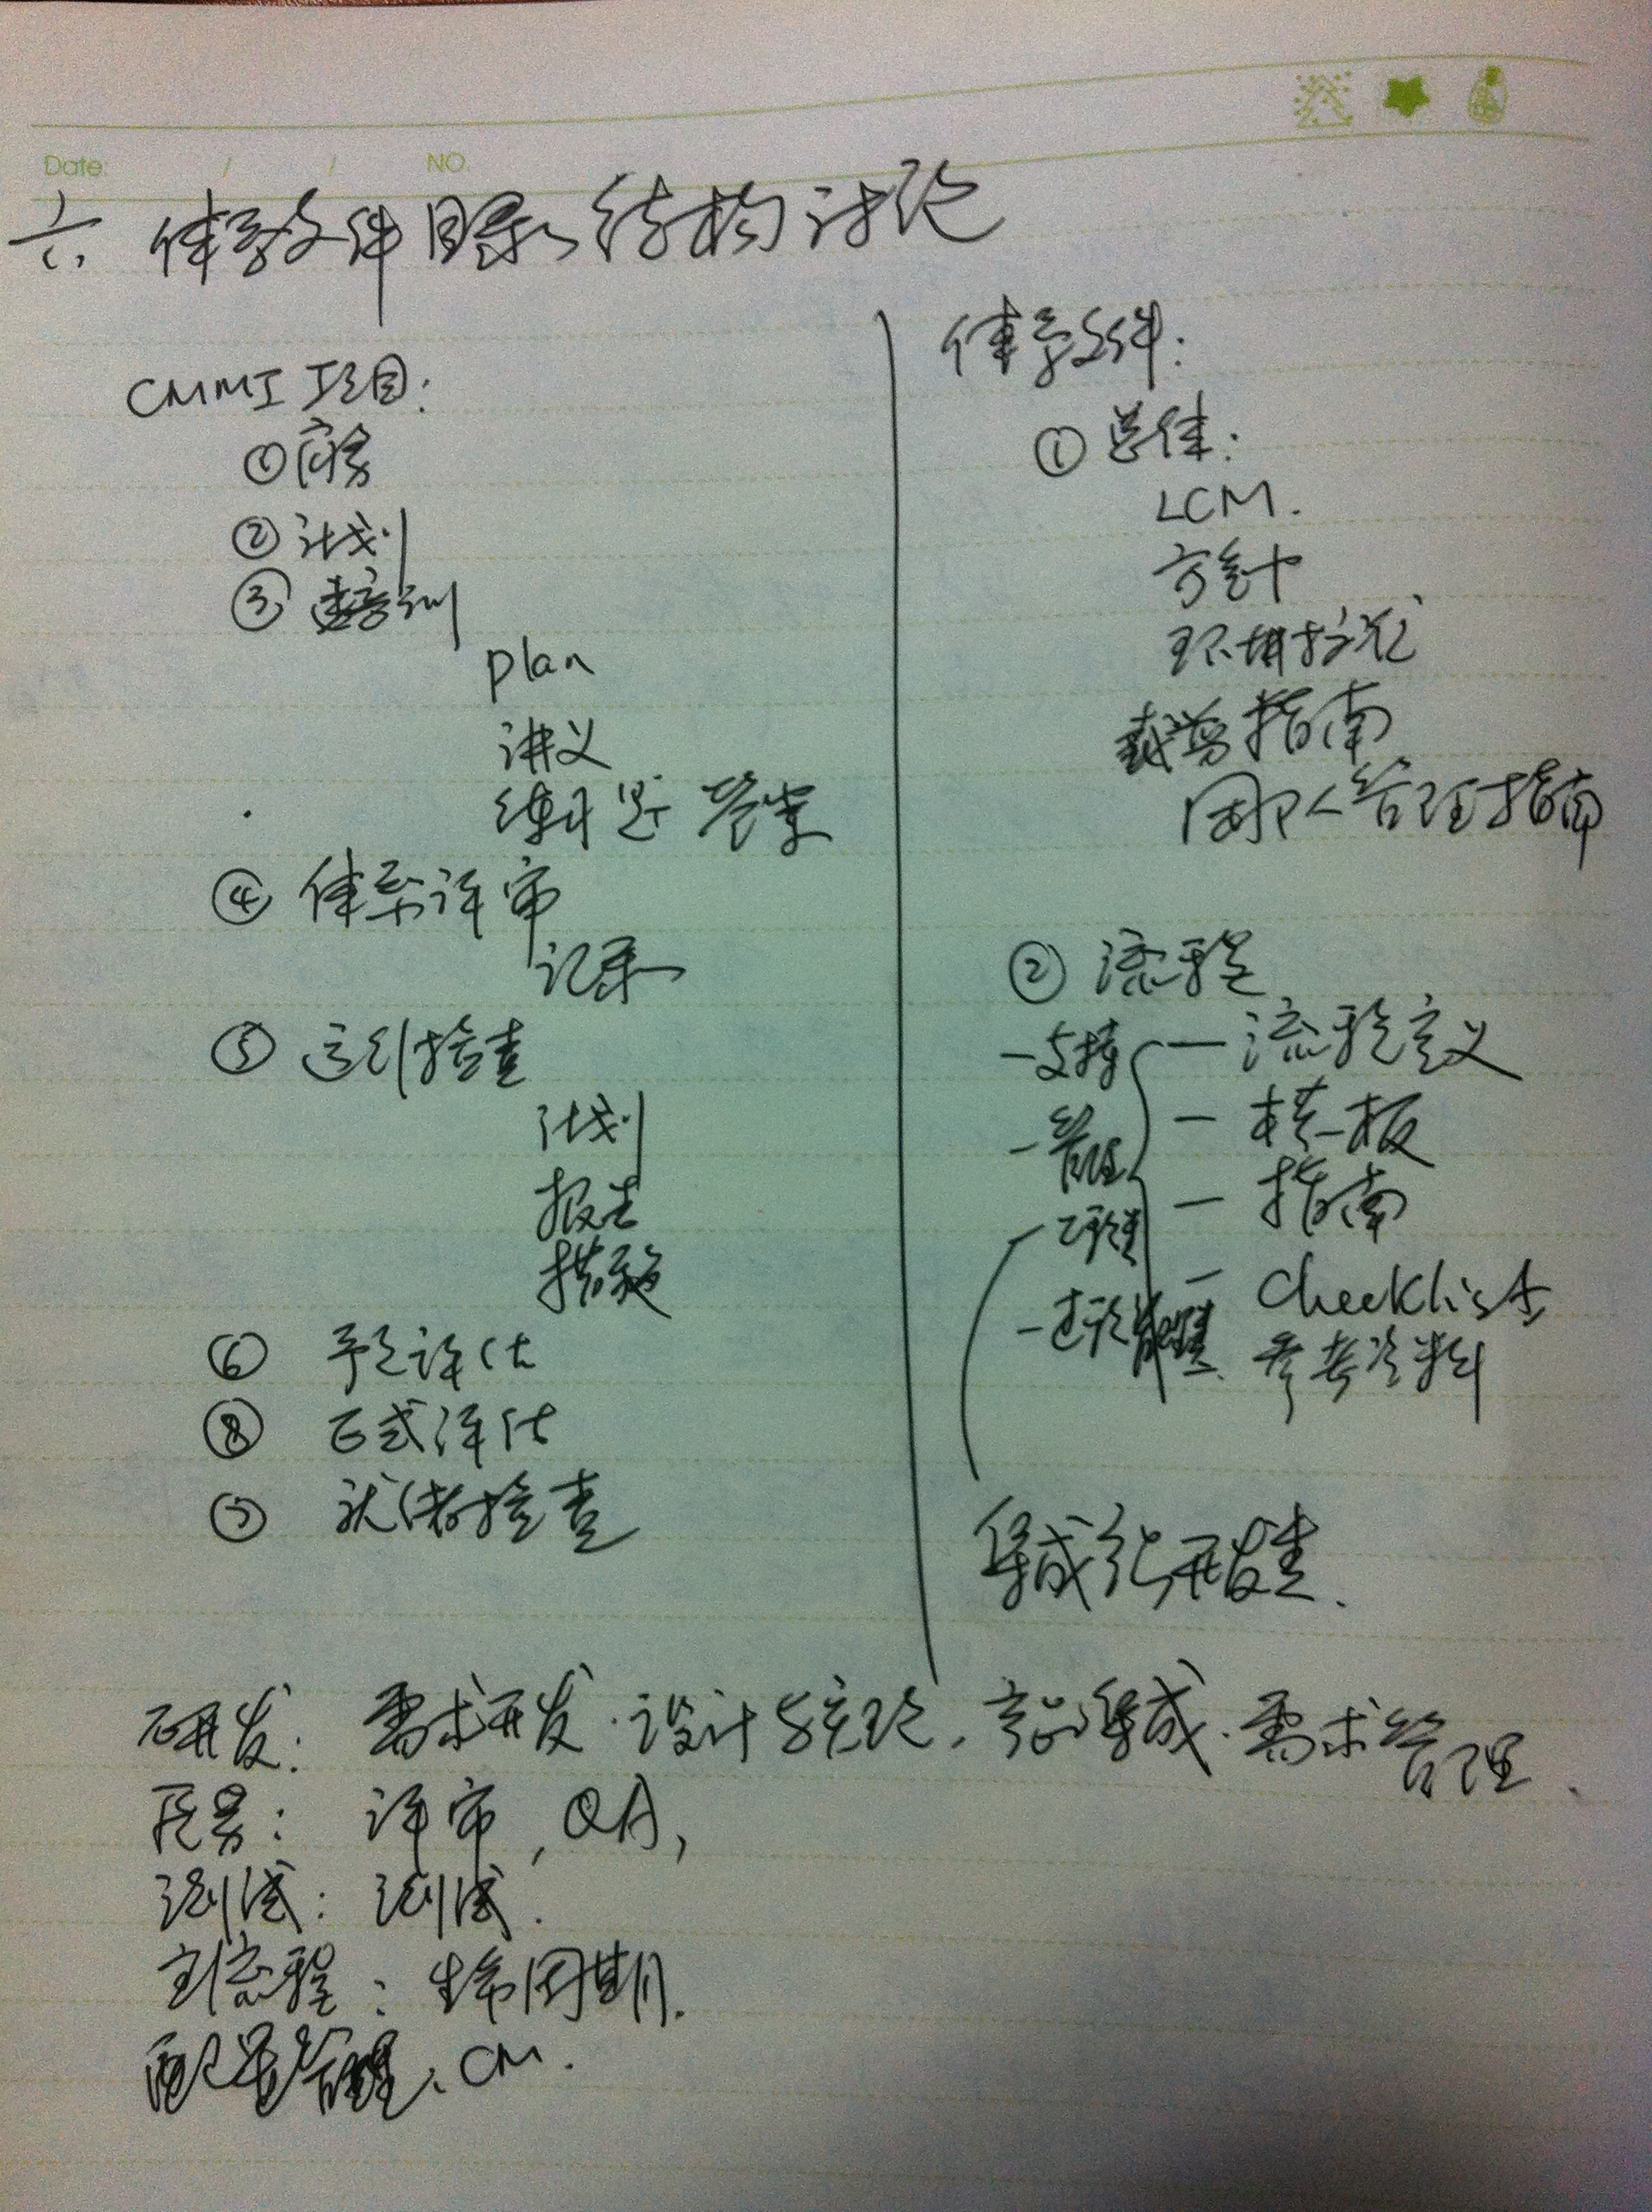 Date: / / NO.
六、体系文件目录结构讨论
CMMI 项目:
① 商务
② 计划
③ 培训
plan
讲义
练习题 答案
④ 体系评审
记录
⑤ 运行检查
计划
报告
措施
⑥ 预评估
⑧ 正式评估
⑦ 就绪检查
体系文件:
① 总体:
LCM.
方针
环境
裁剪指南
团队管理指南
② 流程
-支持
-管理
-工程类
-过程管理类.
— 流程定义
— 模板
— 指南
— Checklist
参考资料
集成化开发类.
研发: 需求开发.设计与实现.产品集成.需求管理.
质量: 评审, QA,
测试: 测试.
主流程: 生命周期.
配置管理、CM.